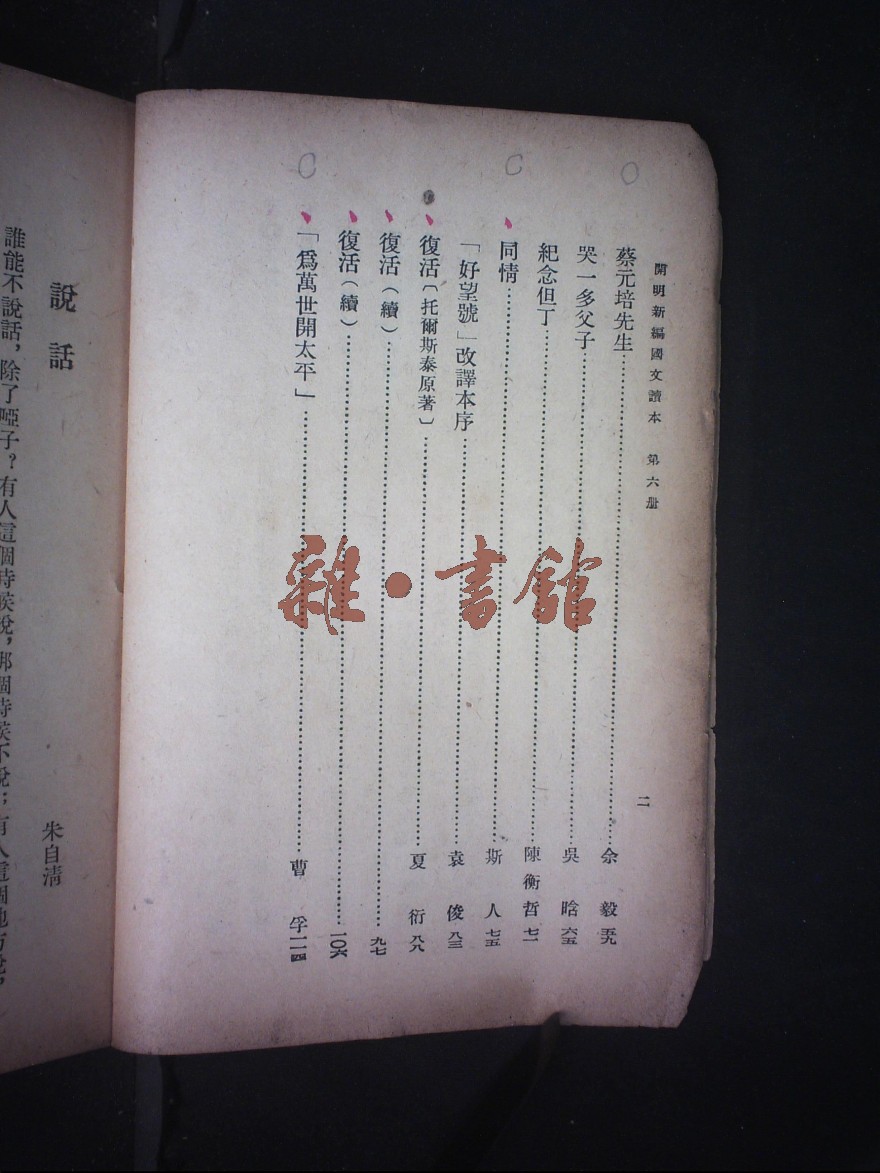 開明新編國文讀本 第六册
二
蔡元培先生……余 毅 五九
哭一多父子……吳 晗 六五
紀念但丁……陳衡哲 七一
同情……斯 人 七五
「好望號」改譯本序……袁 俊 八三
復活〔托爾斯泰原著〕……夏 衍 八八
復活（續）……九七
復活（續）……一〇六
「爲萬世開太平」……曹 孚 一一四
雜·書館
說話
朱自清
誰能不說話，除了啞子？有人這個時候說，那個時候不說；有人這個地方說，